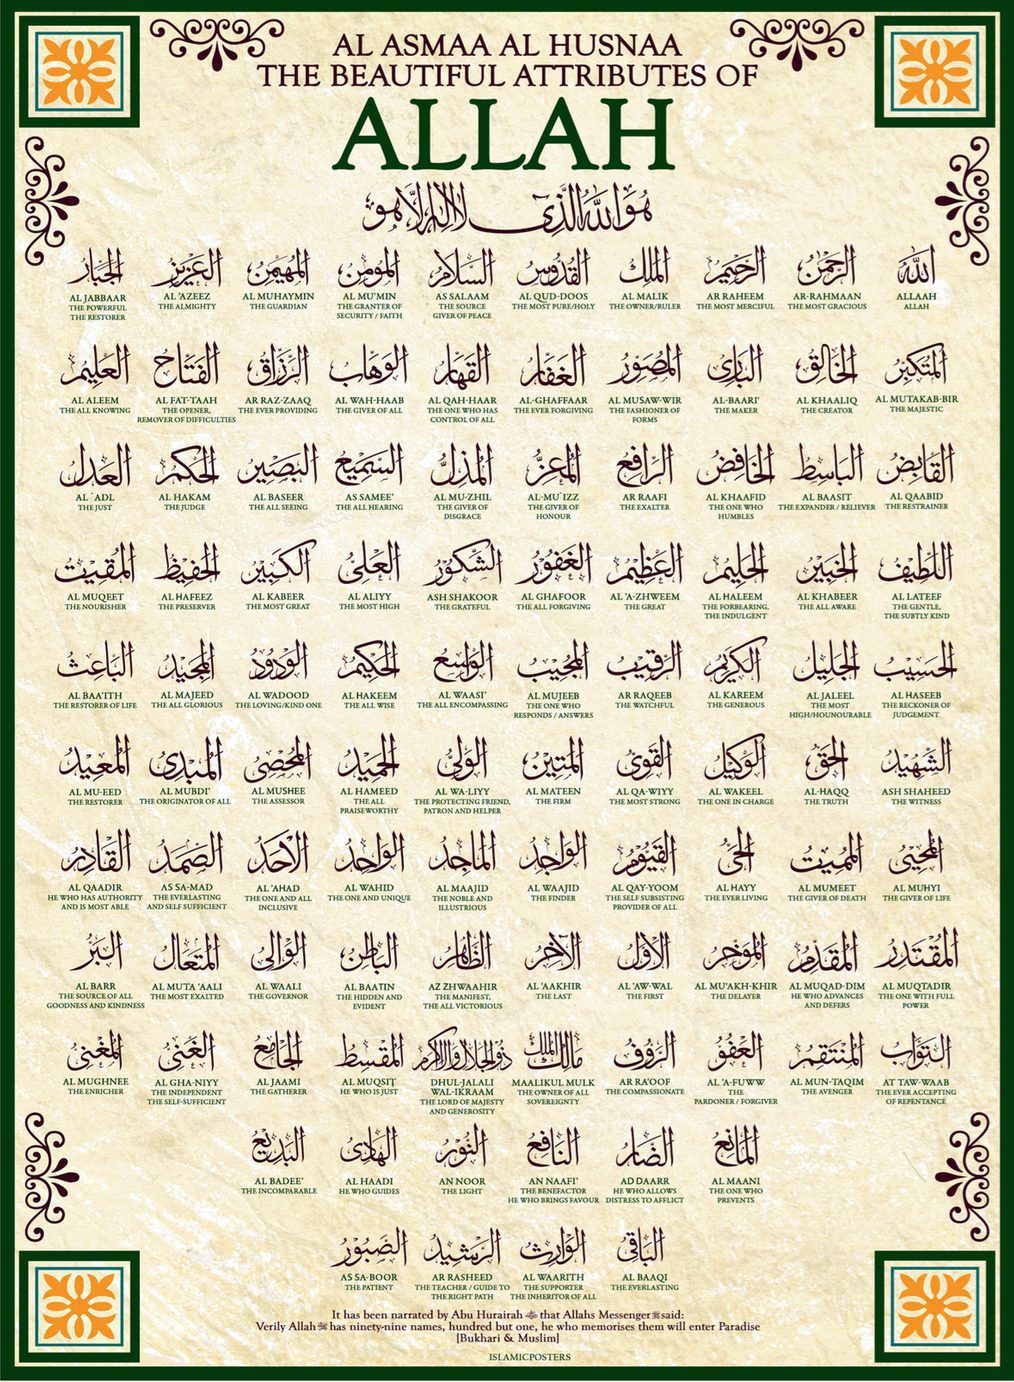 AL ASMAA AL HUSNAA
THE BEAUTIFUL ATTRIBUTES OF
ALLAH
هُوَ اللهُ الَّذِي لَا إِلٰهَ إِلَّا هُوَ
الله
ALLAAH
ALLAH
الرحمن
AR-RAHMAAN
THE MOST GRACIOUS
الرحيم
AR RAHEEM
THE MOST MERCIFUL
الملك
AL MALIK
THE OWNER/RULER
القدوس
AL QUD-DOOS
THE MOST PURE/HOLY
السلام
AS SALAAM
THE SOURCE
GIVER OF PEACE
المؤمن
AL MU'MIN
THE GRANTER OF
SECURITY / FAITH
المهيمن
AL MUHAYMIN
THE GUARDIAN
العزيز
AL 'AZEEZ
THE ALMIGHTY
الجبار
AL JABBAAR
THE POWERFUL
THE RESTORER
المتكبر
AL MUTAKAB-BIR
THE MAJESTIC
الخالق
AL KHAALIQ
THE CREATOR
البارئ
AL-BAARI'
THE MAKER
المصور
AL MUSAW-WIR
THE FASHIONER OF
FORMS
الغفار
AL-GHAFFAAR
THE EVER FORGIVING
القهار
AL QAH-HAAR
THE ONE WHO HAS
CONTROL OF ALL
الوهاب
AL WAH-HAAB
THE GIVER OF ALL
الرزاق
AR RAZ-ZAAQ
THE EVER PROVIDING
الفتاح
AL FAT-TAAH
THE OPENER,
REMOVER OF DIFFICULTIES
العليم
AL ALEEM
THE ALL KNOWING
القابض
AL QAABID
THE RESTRAINER
الباسط
AL BAASIT
THE EXPANDER / RELIEVER
الخافض
AL KHAAFID
THE ONE WHO
HUMBLES
الرافع
AR RAAFI
THE EXALTER
المعز
AL-MU`IZZ
THE GIVER OF
HONOUR
المذل
AL MU-ZHIL
THE GIVER OF
DISGRACE
السميع
AS SAMEE'
THE ALL HEARING
البصير
AL BASEER
THE ALL SEEING
الحكم
AL HAKAM
THE JUDGE
العدل
AL `ADL
THE JUST
اللطيف
AL LATEEF
THE GENTLE,
THE SUBTLY KIND
الخبير
AL KHABEER
THE ALL AWARE
الحليم
AL HALEEM
THE FORBEARING,
THE INDULGENT
العظيم
AL 'A-ZHWEEM
THE GREAT
الغفور
AL GHAFOOR
THE ALL FORGIVING
الشكور
ASH SHAKOOR
THE GRATEFUL
العلي
AL ALIYY
THE MOST HIGH
الكبير
AL KABEER
THE MOST GREAT
الحفيظ
AL HAFEEZ
THE PRESERVER
المقيت
AL MUQEET
THE NOURISHER
الحسيب
AL HASEEB
THE RECKONER OF
JUDGEMENT
الجليل
AL JALEEL
THE MOST
HIGH/HOUNOURABLE
الكريم
AL KAREEM
THE GENEROUS
الرقيب
AR RAQEEB
THE WATCHFUL
المجيب
AL MUJEEB
THE ONE WHO
RESPONDS / ANSWERS
الواسع
AL WAASI'
THE ALL ENCOMPASSING
الحكيم
AL HAKEEM
THE ALL WISE
الودود
AL WADOOD
THE LOVING/KIND ONE
المجيد
AL MAJEED
THE ALL GLORIOUS
الباعث
AL BAA'ITH
THE RESTORER OF LIFE
الشهيد
ASH SHAHEED
THE WITNESS
الحق
AL-HAQQ
THE TRUTH
الوكيل
AL WAKEEL
THE ONE IN CHARGE
القوي
AL QA-WIYY
THE MOST STRONG
المتين
AL MATEEN
THE FIRM
الولي
AL WA-LIYY
THE PROTECTING FRIEND,
PATRON AND HELPER
الحميد
AL HAMEED
THE ALL
PRAISEWORTHY
المحصي
AL MUSHEE
THE ASSESSOR
المبدئ
AL MUBDI'
THE ORIGINATOR OF ALL
المعيد
AL MU-EED
THE RESTORER
المحيي
AL MUHYI
THE GIVER OF LIFE
المميت
AL MUMEET
THE GIVER OF DEATH
الحي
AL HAYY
THE EVER LIVING
القيوم
AL QAY-YOOM
THE SELF SUBSISTING
PROVIDER OF ALL
الواجد
AL WAAJID
THE FINDER
الماجد
AL MAAJID
THE NOBLE AND
ILLUSTRIOUS
الواحد
AL WAHID
THE ONE AND UNIQUE
الاحد
AL 'AHAD
THE ONE AND ALL
INCLUSIVE
الصمد
AS SA-MAD
THE EVERLASTING
AND SELF SUFFICIENT
القادر
AL QAADIR
HE WHO HAS AUTHORITY
AND IS MOST ABLE
المقتدر
AL MUQTADIR
THE ONE WITH FULL
POWER
المقدم
AL MUQAD-DIM
HE WHO ADVANCES
AND DEFERS
المؤخر
AL MU'AKH-KHIR
THE DELAYER
الاول
AL 'AW-WAL
THE FIRST
الآخر
AL 'AAKHIR
THE LAST
الظاهر
AZ ZHWAAHIR
THE MANIFEST,
THE ALL VICTORIOUS
الباطن
AL BAATIN
THE HIDDEN AND
EVIDENT
الوالي
AL WAALI
THE GOVERNOR
المتعال
AL MUTA 'AALI
THE MOST EXALTED
البر
AL BARR
THE SOURCE OF ALL
GOODNESS AND KINDNESS
التواب
AT TAW-WAAB
THE EVER ACCEPTING
OF REPENTANCE
المنتقم
AL MUN-TAQIM
THE AVENGER
العفو
AL 'A-FUWW
THE
PARDONER / FORGIVER
الرؤوف
AR RA'OOF
THE COMPASSIONATE
مالك الملك
MAALIKUL MULK
THE OWNER OF ALL
SOVEREIGNTY
ذو الجلال والاكرام
DHUL-JALALI
WAL-IKRAAM
THE LORD OF MAJESTY
AND GENEROSITY
المقسط
AL MUQSIT
HE WHO IS JUST
الجامع
AL JAAMI
THE GATHERER
الغني
AL GHA-NIYY
THE INDEPENDENT
THE SELF-SUFFICIENT
المغني
AL MUGHNEE
THE ENRICHER
المانع
AL MAANI
THE ONE WHO
PREVENTS
الضار
AD DAARR
HE WHO ALLOWS
DISTRESS TO AFFLICT
النافع
AN NAAFI'
THE BENEFACTOR
HE WHO BRINGS FAVOUR
النور
AN NOOR
THE LIGHT
الهادي
AL HAADI
HE WHO GUIDES
البديع
AL BADEE'
THE INCOMPARABLE
الباقي
AL BAAQI
THE EVERLASTING
الوارث
AL WAARITH
THE SUPPORTER
THE INHERITOR OF ALL
الرشيد
AR RASHEED
THE TEACHER / GUIDE TO
THE RIGHT PATH
الصبور
AS SA-BOOR
THE PATIENT
It has been narrated by Abu Hurairah that Allahs Messenger ﷺ said:
Verily Allah has ninety-nine names, hundred but one, he who memorises them will enter Paradise
[Bukhari & Muslim]
ISLAMICPOSTERS